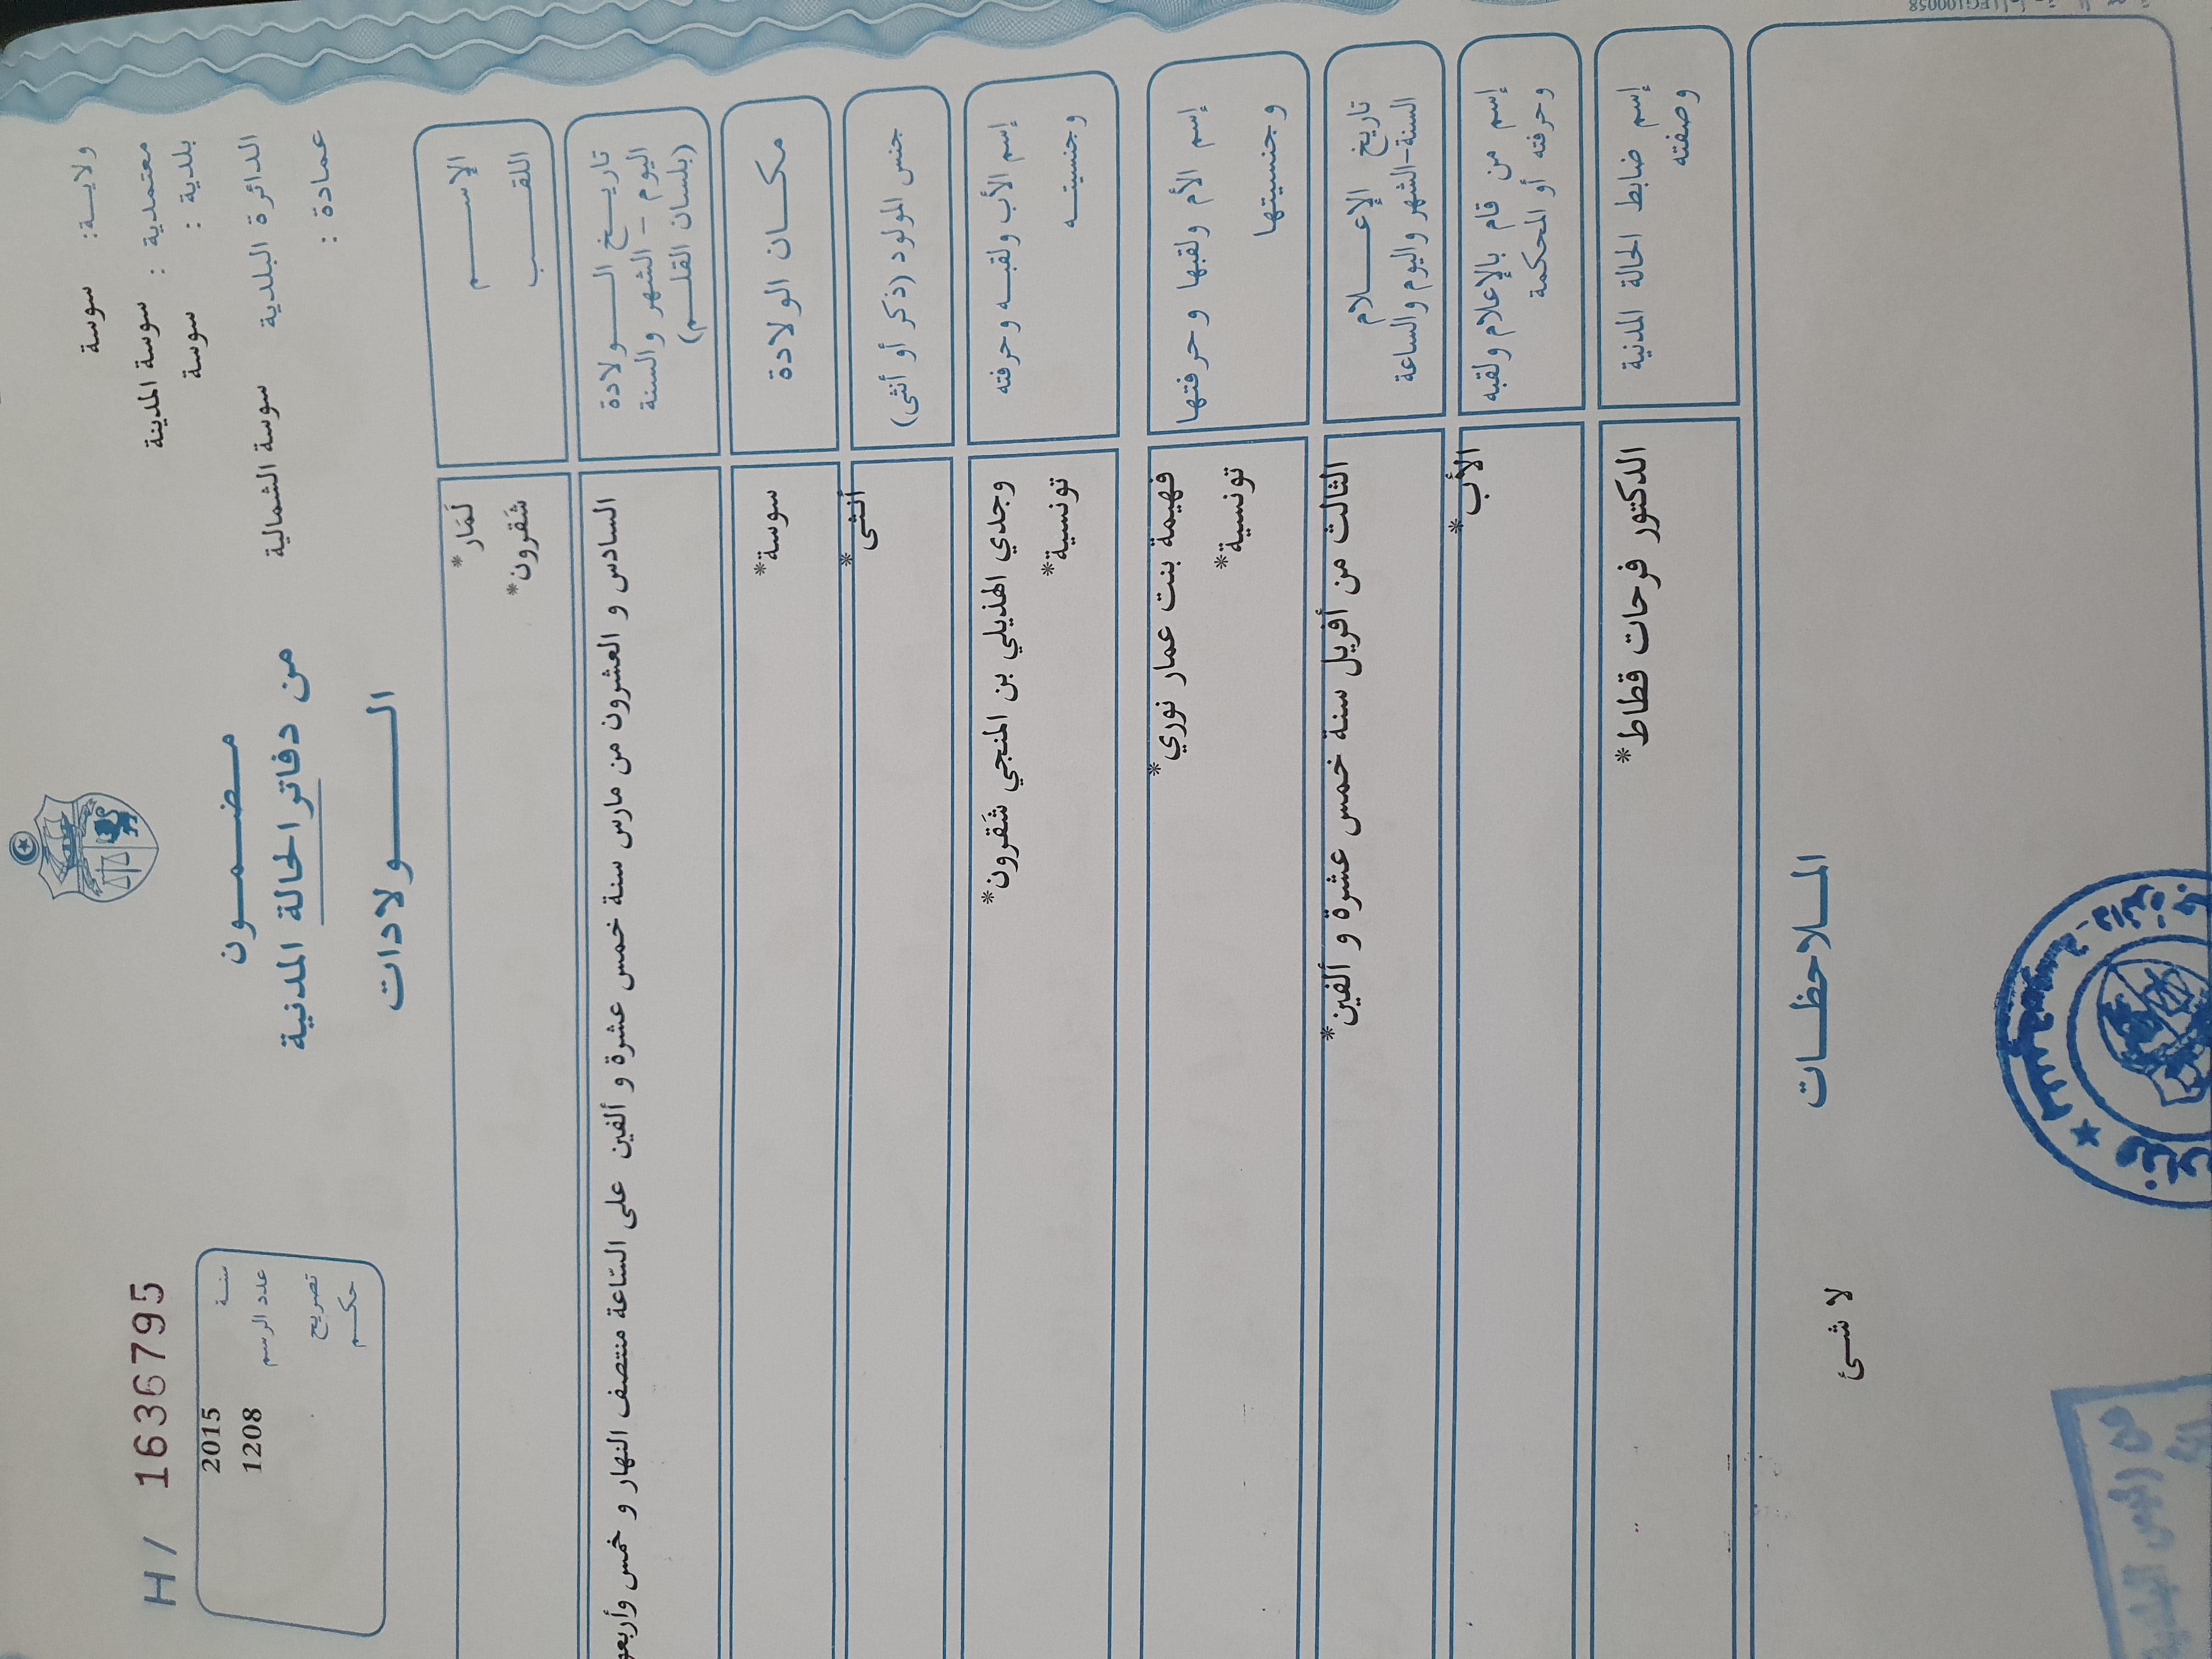 ولاية: سوسة
معتمدية : سوسة المدينة
بلدية : سوسة
الدائرة البلدية سوسة الشمالية
عمادة :
H/ 1636795
سنة 2015
عدد الرسم 1208
تصريح
حكم
مضمون
من دفاتر الحالة المدنية
الولادات
الإسم لَمَار*
اللقب شَقرون*
تاريخ الولادة
اليوم - الشهر والسنة
(بلسان القلم)
السادس و العشرون من مارس سنة خمس عشرة و ألفين على السّاعة منتصف النهار و خمس
مكان الولادة سوسة*
جنس المولود (ذكر أو أنثى) أنثى*
إسم الأب ولقبه وحرفته وجدي الهذيلي بن المنجي شَقرون*
وجنسيته تونسية*
إسم الأم ولقبها وحرفتها فهيمة بنت عمار نوري*
وجنسيتها تونسية*
تاريخ الإعلام
السنة-الشهر واليوم والساعة
الثالث من أفريل سنة خمس عشرة و ألفين*
إسم من قام بالإعلام ولقبه
وحرفته أو المحكمة
الأب*
إسم ضابط الحالة المدنية
وصفته
الدكتور فرحات قطاط*
الملاحظات
لا شئ